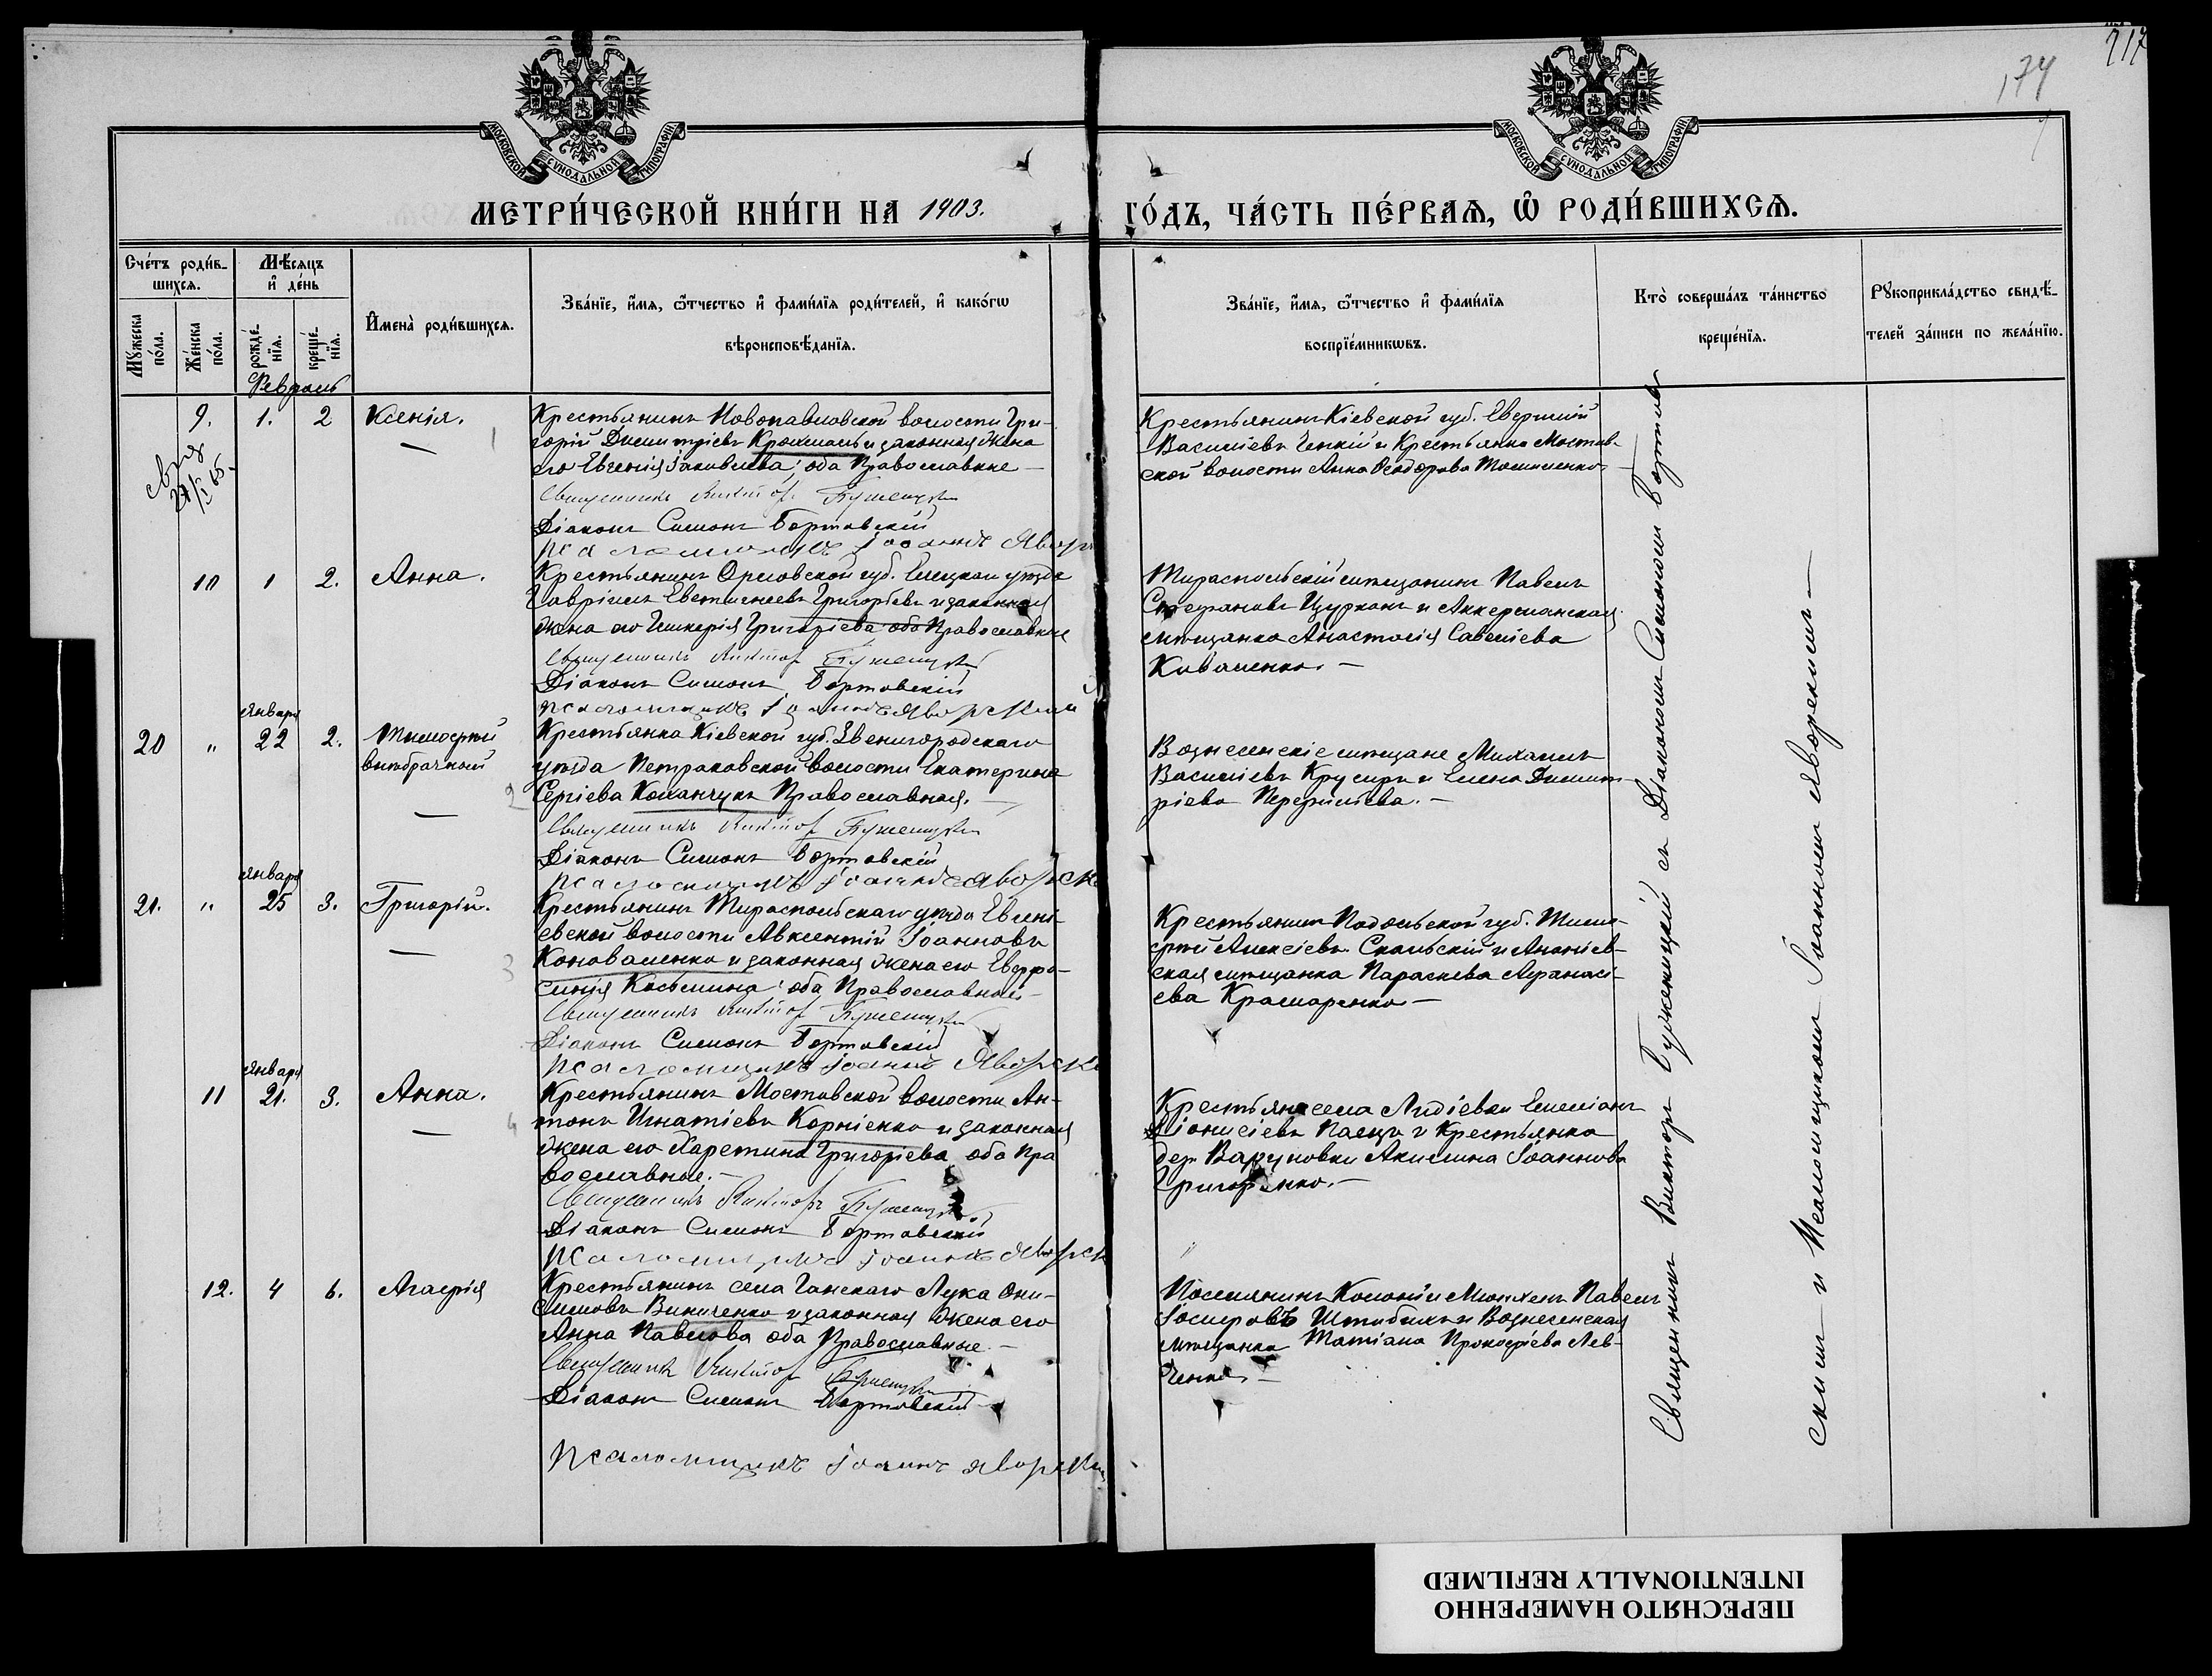 174
217
МОСКОВСКОЙ СѴНОДАЛЬНОЙ ТИПОГРАФІИ
МОСКОВСКОЙ СѴНОДАЛЬНОЙ ТИПОГРАФІИ
МЕТРИ́ЧЕСКОЙ КНИ́ГИ НА 1903.
ГО́ДЪ, ЧА́СТЬ ПЕ́РВАѦ, Ѡ҆ РОДИ́ВШИХСѦ.
Сче́тъ роди́в-
шихсѧ.
Мѣ́сѧцъ
и҆ де́нь
Мꙋ́жеска
по́ла.
Же́нска
по́ла.
рожде́-
нїѧ.
креще́-
нїѧ.
И҆мена̀ роди́вшихсѧ.
Зва́нїе, и҆́мѧ, ѻ҆́тчество и҆ фами́лїѧ роди́телей, и҆ како́гѡ
вѣроисповѣ́данїѧ.
Зва́нїе, и҆́мѧ, ѻ҆́тчество и҆ фами́лїѧ
воспрїе́мникѡвъ.
Кто̀ соверша́лъ та́инство
креще́нїѧ.
Рꙋкоприкла́дство свидѣ́-
телей за́писи по жела́нїю.
Февраль
9. 1. 2 Ксенія.
1
27/I 65.
Крестьянинъ Новопавловской волости Гри-
горій Димитріевъ Крохмаль и законная жена
его Евгенія Іаковлева; оба Православные —
Священникъ Викторъ
Діаконъ Симонъ Бортовскій
псаломщикъ Іоаннъ Явор
Крестьянинъ Кіевской губ.
Василіевъ и Крестьянка Мостов-
ской волости Анна Ѳеодорова —
10 1 2. Анна.
Крестьянинъ Орловской губ. Елецкаго уѣзда
Гавріилъ Григорьевъ и законная
жена его Гликерія Григоріева оба Православные
Священникъ Викторъ
Діаконъ Симонъ Бортовскій
псаломщикъ Іоаннъ Яворскій
Тираспольскій мѣщанинъ Павелъ
Стефановъ Цурканъ и Аккерманская
мѣщанка Анастасія Савеліева
Коваленко. —
Января
20 " 22 2. Тимофей
внѣбрачный
2
Крестьянка Кіевской губ. Звенигородскаго
уѣзда Петраковской волости Екатерина
Сергіева Коханчукъ Православная. —
Священникъ Викторъ
Діаконъ Симонъ Бортовскій
псаломщикъ Іоаннъ Яворск
Вознесенскіе мѣщане Михаилъ
Василіевъ и Елена Димит-
ріева —
Января
21. " 25 3. Григорій.
3
Крестьянинъ Тираспольскаго уѣзда Евгені-
евской волости Авксентій Іоанновъ
Коноваленко и законная жена его Евфро-
синія Косьмина: оба Православные —
Священникъ Викторъ
Діаконъ Симонъ Бортовскій
псаломщикъ Іоаннъ Яворск
Крестьянинъ Подольской губ. Тимо-
фей Алексіевъ Скальскій и Ананіев-
ская мѣщанка Параскева Афанасі-
ева Крамаренко —
Января
11 21. 3. Анна.
4
Крестьянинъ Мостовской волости Ан-
тонъ Игнатіевъ Корніенко и законная
жена его Харитина Григоріева оба Пра
вославные. —
Священникъ Викторъ
Діаконъ Симонъ Бортовскій
псаломщикъ Іоаннъ Яворск
Крестьяне села Лидіевки Емеліанъ
Діонисіевъ и Крестьянка
дер. Варуновки Акилина Іоаннова
Григоренко. —
12. 4 6. Агафія
Крестьянинъ села Ганскаго Лука Они-
симовъ Винниченко и законная жена его
Анна Павлова оба Православные —
Священникъ Викторъ
Діаконъ Симонъ Бортовскій
псаломщикъ Іоаннъ Яворскій
Поселянинъ Колоніи Мюнхенъ Павелъ
Іосифовъ и Вознесенская
мѣщанка Татіана Прокофіева Лев-
ченко. —
Священникъ Викторъ съ Діакономъ Симономъ Бортов
скимъ и Псаломщикомъ Іоанномъ Яворскимъ —
ПЕРЕСНЯТО НАМЕРЕННО
INTENTIONALLY REFILMED